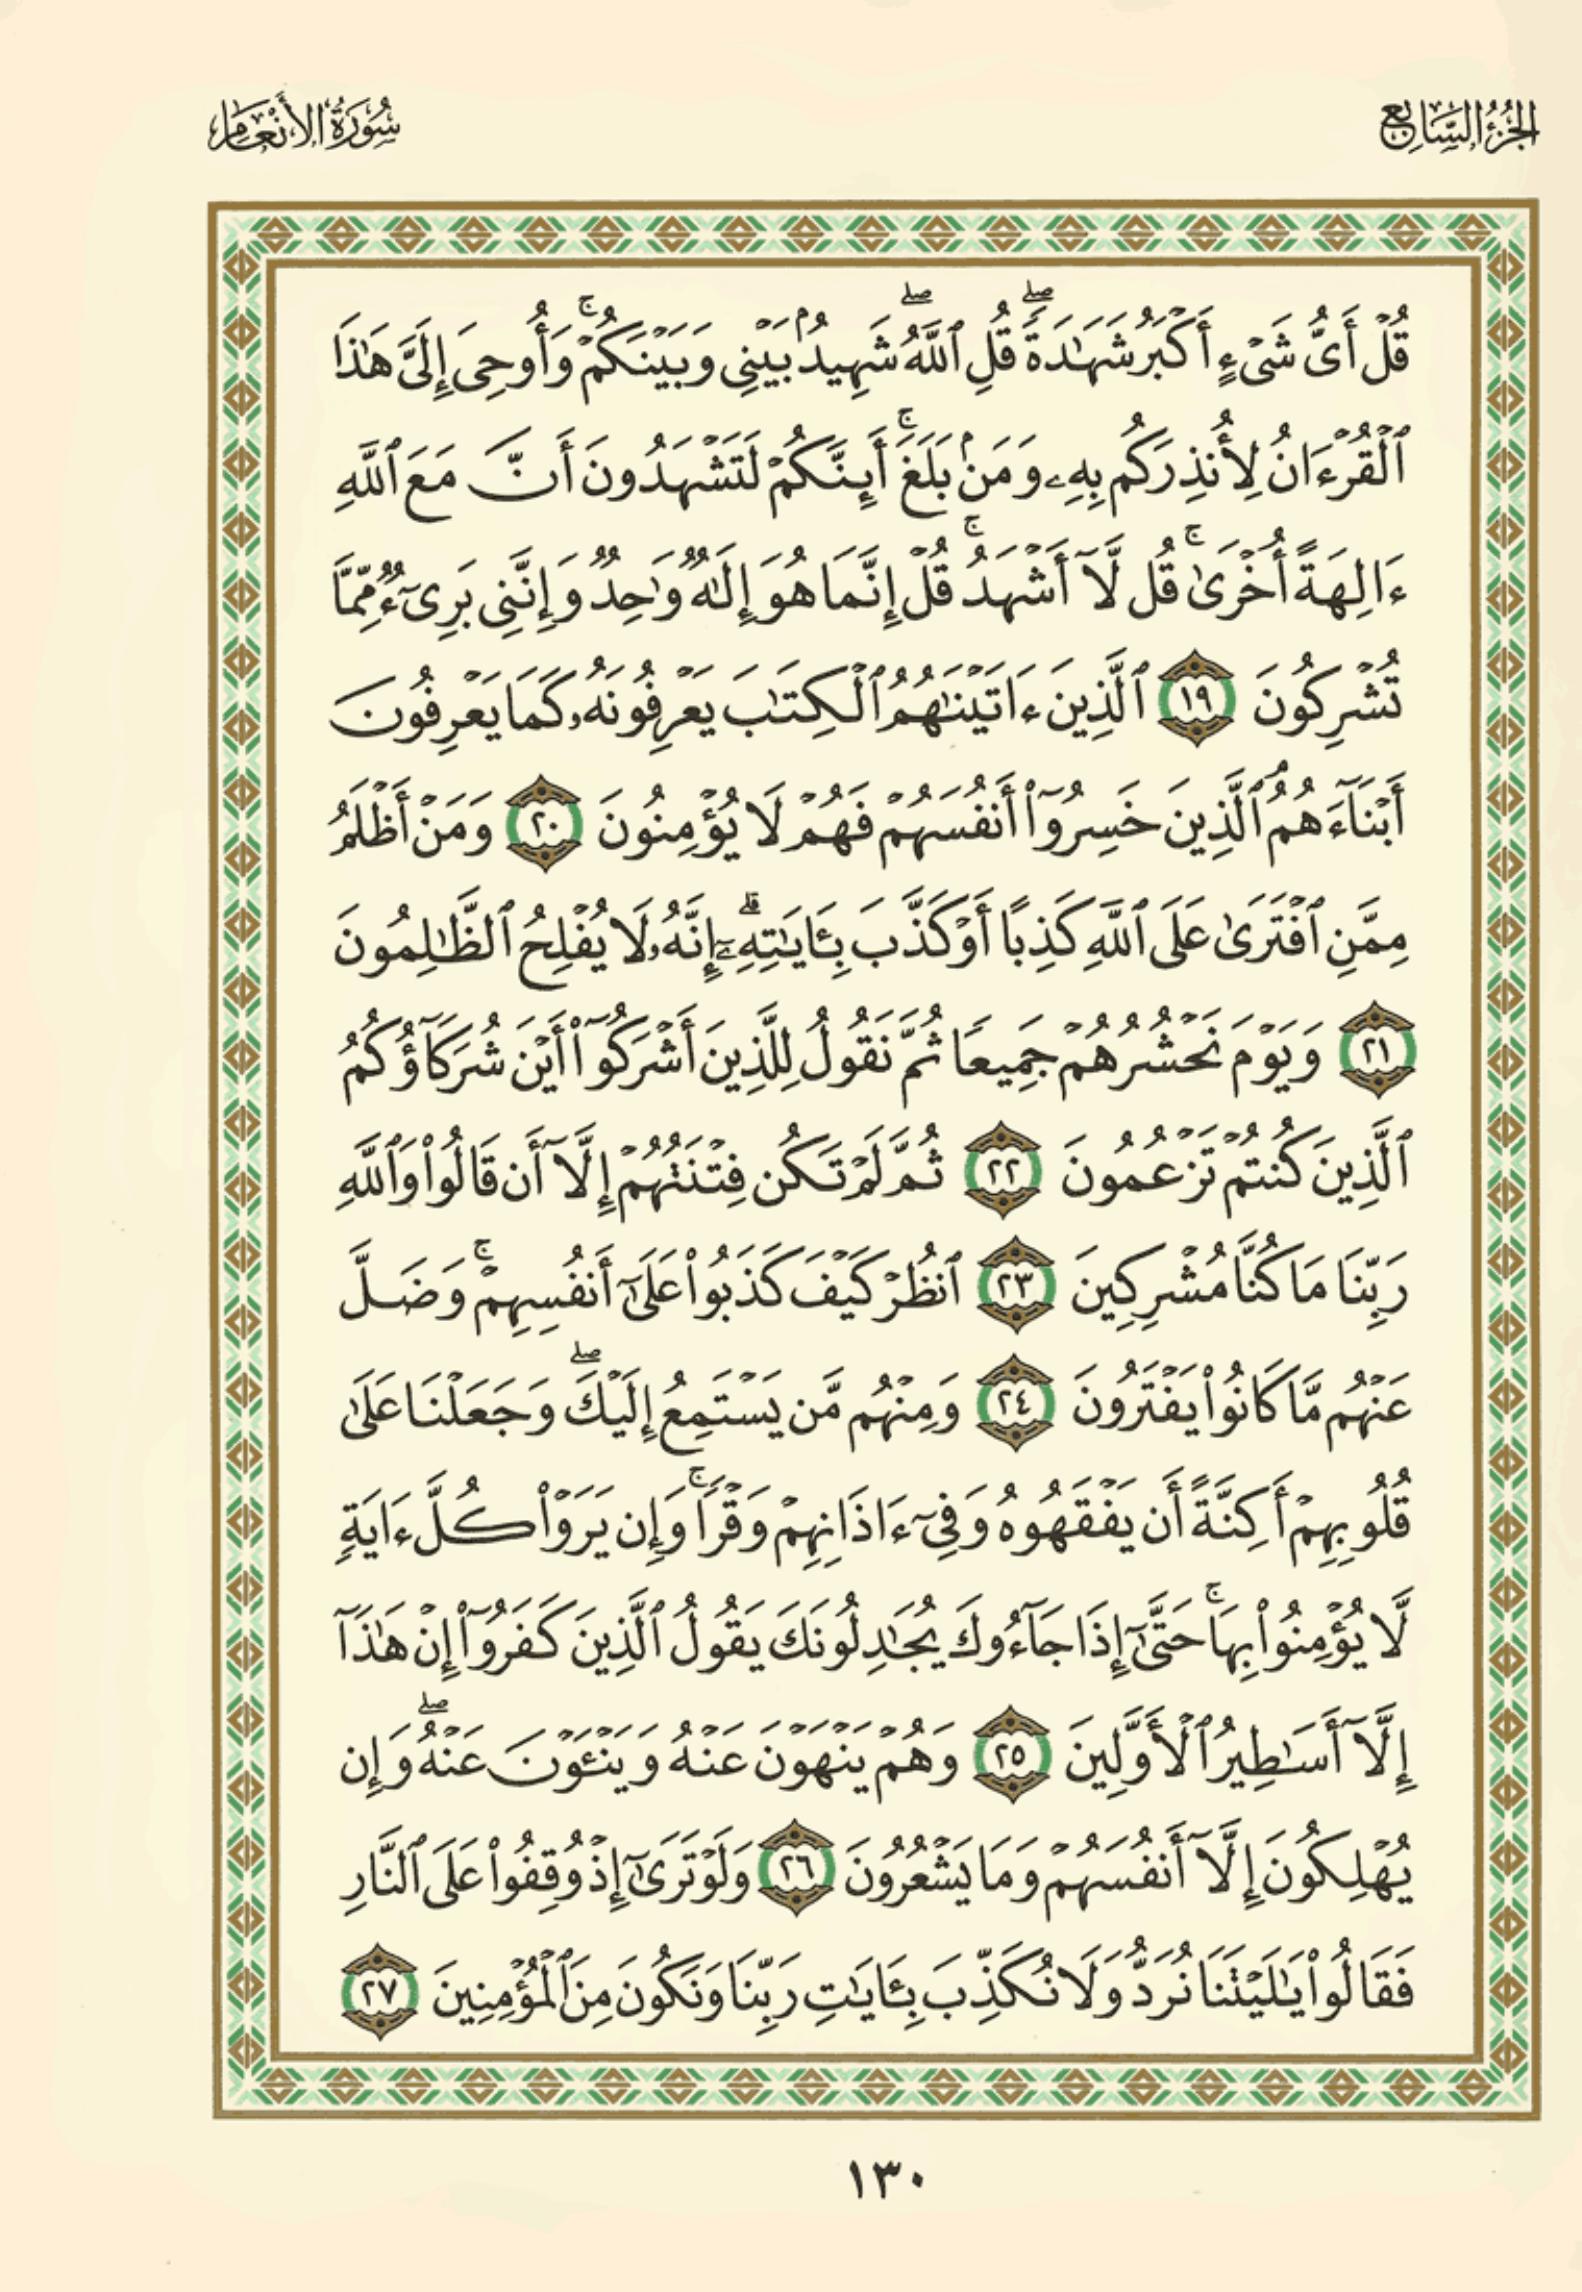 الجزء السابع
سورة الأنعام
قُلْ أَيُّ شَيْءٍ أَكْبَرُ شَهَٰدَةًۖ قُلِ ٱللَّهُۖ شَهِيدُۢ بَيْنِي وَبَيْنَكُمْۚ وَأُوحِيَ إِلَيَّ هَٰذَا
ٱلْقُرْءَانُ لِأُنذِرَكُم بِهِۦ وَمَنۢ بَلَغَۚ أَئِنَّكُمْ لَتَشْهَدُونَ أَنَّ مَعَ ٱللَّهِ
ءَالِهَةً أُخْرَىٰۚ قُل لَّآ أَشْهَدُۚ قُلْ إِنَّمَا هُوَ إِلَٰهٌ وَٰحِدٌ وَإِنَّنِي بَرِيٓءٌ مِّمَّا
تُشْرِكُونَ ١٩ ٱلَّذِينَ ءَاتَيْنَٰهُمُ ٱلْكِتَٰبَ يَعْرِفُونَهُۥ كَمَا يَعْرِفُونَ
أَبْنَآءَهُمُ ٱلَّذِينَ خَسِرُوٓا۟ أَنفُسَهُمْ فَهُمْ لَا يُؤْمِنُونَ ٢٠ وَمَنْ أَظْلَمُ
مِمَّنِ ٱفْتَرَىٰ عَلَى ٱللَّهِ كَذِبًا أَوْ كَذَّبَ بِـَٔايَٰتِهِۦٓۗ إِنَّهُۥ لَا يُفْلِحُ ٱلظَّٰلِمُونَ
٢١ وَيَوْمَ نَحْشُرُهُمْ جَمِيعًا ثُمَّ نَقُولُ لِلَّذِينَ أَشْرَكُوٓا۟ أَيْنَ شُرَكَآؤُكُمُ
ٱلَّذِينَ كُنتُمْ تَزْعُمُونَ ٢٢ ثُمَّ لَمْ تَكُن فِتْنَتُهُمْ إِلَّآ أَن قَالُوا۟ وَٱللَّهِ
رَبِّنَا مَا كُنَّا مُشْرِكِينَ ٢٣ ٱنظُرْ كَيْفَ كَذَبُوا۟ عَلَىٰٓ أَنفُسِهِمْۚ وَضَلَّ
عَنْهُم مَّا كَانُوا۟ يَفْتَرُونَ ٢٤ وَمِنْهُم مَّن يَسْتَمِعُ إِلَيْكَۖ وَجَعَلْنَا عَلَىٰ
قُلُوبِهِمْ أَكِنَّةً أَن يَفْقَهُوهُ وَفِيٓ ءَاذَانِهِمْ وَقْرًاۚ وَإِن يَرَوْا۟ كُلَّ ءَايَةٍ
لَّا يُؤْمِنُوا۟ بِهَاۚ حَتَّىٰٓ إِذَا جَآءُوكَ يُجَٰدِلُونَكَ يَقُولُ ٱلَّذِينَ كَفَرُوٓا۟ إِنْ هَٰذَآ
إِلَّآ أَسَٰطِيرُ ٱلْأَوَّلِينَ ٢٥ وَهُمْ يَنْهَوْنَ عَنْهُ وَيَنْـَٔوْنَ عَنْهُۖ وَإِن
يُهْلِكُونَ إِلَّآ أَنفُسَهُمْ وَمَا يَشْعُرُونَ ٢٦ وَلَوْ تَرَىٰٓ إِذْ وُقِفُوا۟ عَلَى ٱلنَّارِ
فَقَالُوا۟ يَٰلَيْتَنَا نُرَدُّ وَلَا نُكَذِّبَ بِـَٔايَٰتِ رَبِّنَا وَنَكُونَ مِنَ ٱلْمُؤْمِنِينَ ٢٧
١٣٠